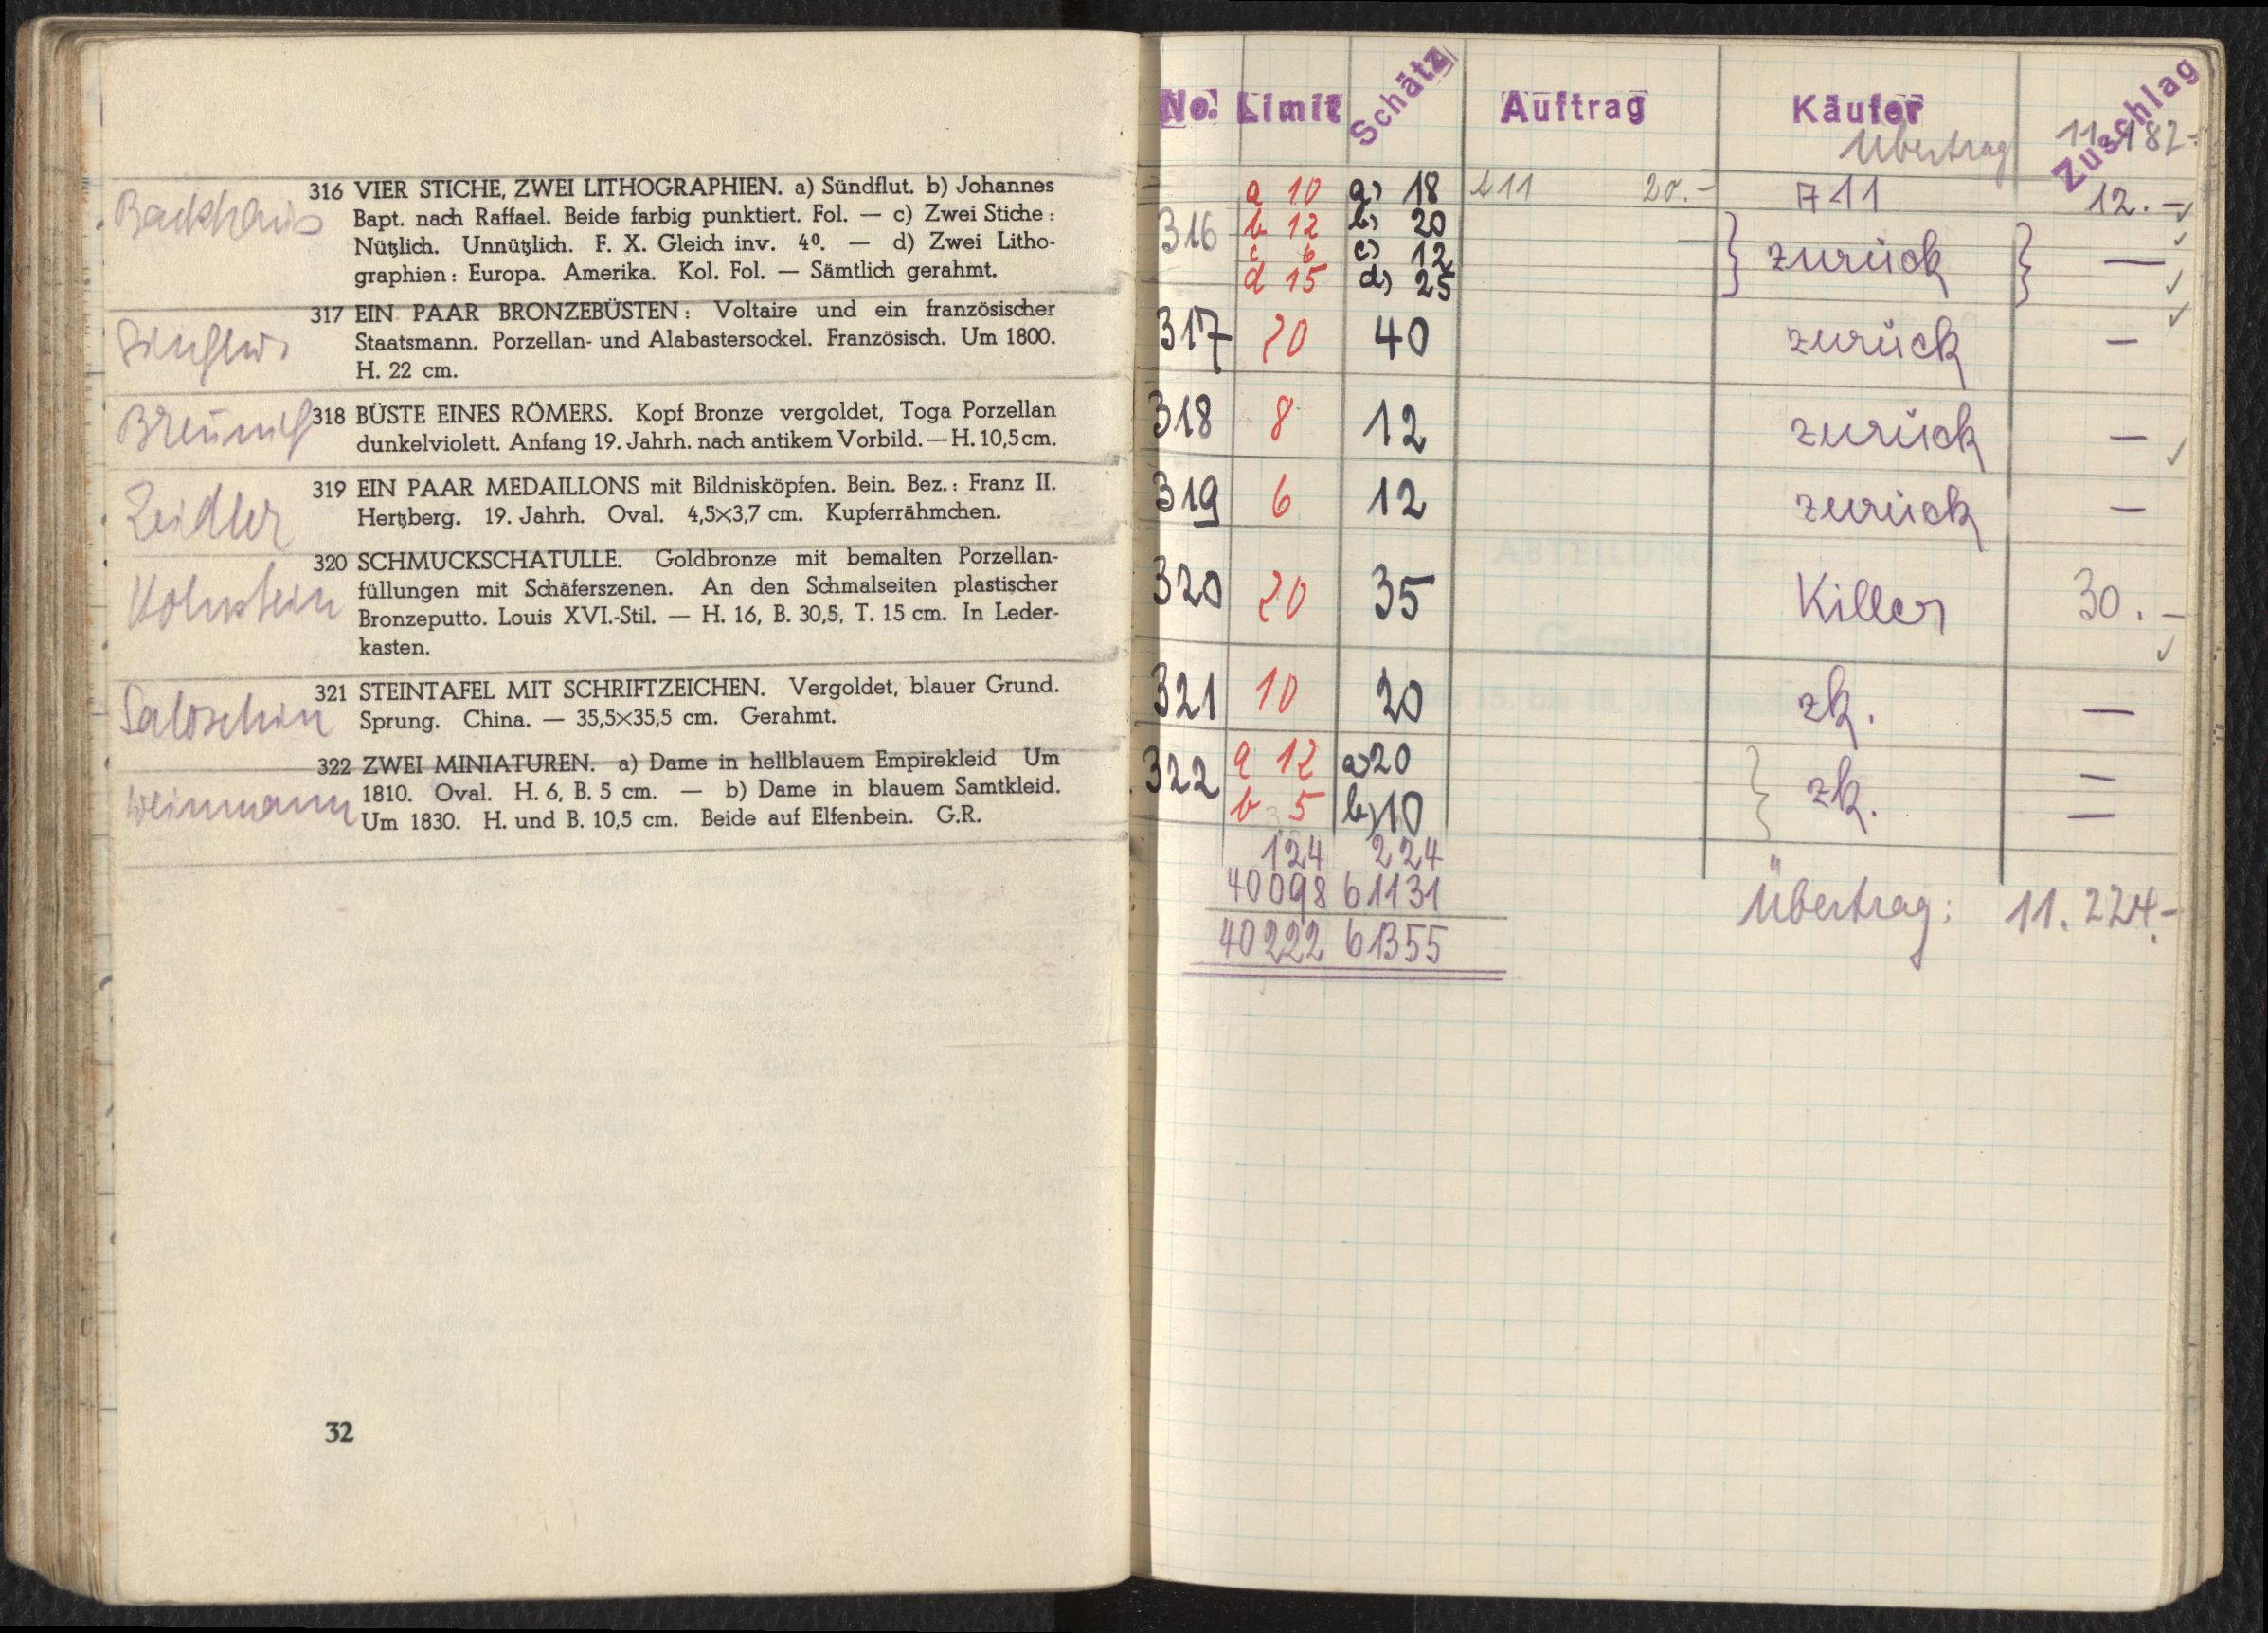 Backhaus
316 VIER STICHE, ZWEI LITHOGRAPHIEN. a) Sündflut. b) Johannes
Bapt. nach Raffael. Beide farbig punktiert. Fol. — c) Zwei Stiche:
Nützlich. Unnützlich. F. X. Gleich inv. 4º. — d) Zwei Litho-
graphien: Europa. Amerika. Kol. Fol. — Sämtlich gerahmt.
317 EIN PAAR BRONZEBÜSTEN: Voltaire und ein französischer
Staatsmann. Porzellan- und Alabastersockel. Französisch. Um 1800.
H. 22 cm.
318 BÜSTE EINES RÖMERS. Kopf Bronze vergoldet, Toga Porzellan
dunkelviolett. Anfang 19. Jahrh. nach antikem Vorbild. — H. 10,5 cm.
Zeidler
319 EIN PAAR MEDAILLONS mit Bildnisköpfen. Bein. Bez.: Franz II.
Hertzberg. 19. Jahrh. Oval. 4,5×3,7 cm. Kupferrähmchen.
320 SCHMUCKSCHATULLE. Goldbronze mit bemalten Porzellan-
füllungen mit Schäferszenen. An den Schmalseiten plastischer
Bronzeputto. Louis XVI.-Stil. — H. 16, B. 30,5, T. 15 cm. In Leder-
kasten.
Saloschin
321 STEINTAFEL MIT SCHRIFTZEICHEN. Vergoldet, blauer Grund.
Sprung. China. — 35,5×35,5 cm. Gerahmt.
Weinmann
322 ZWEI MINIATUREN. a) Dame in hellblauem Empirekleid Um
1810. Oval. H. 6, B. 5 cm. — b) Dame in blauem Samtkleid.
Um 1830. H. und B. 10,5 cm. Beide auf Elfenbein. G.R.
32
No. Limit Schätz Auftrag Käufer Zuschlag
Übertrag 11.182.-
316 a 10 a) 18 20.- A11 12.-
b 12 b) 20
c 6 c) 12 zurück —
d 15 d) 25
317 20 40 zurück —
318 8 12 zurück —
319 6 12 zurück —
320 20 35 Killer 30.-
321 10 20 zk. —
322 a 12 a) 20 zk. —
b 5 b) 10 —
124 224
40098 61131
Übertrag: 11.224.-
40222 61355